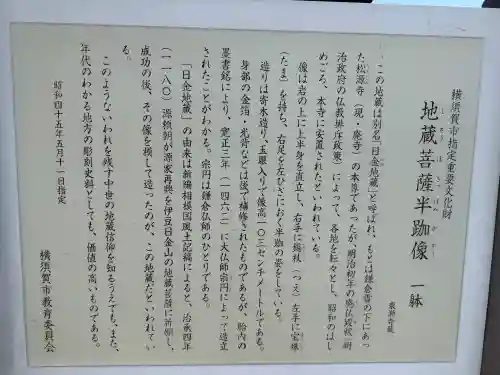 横須賀市指定重要文化財
地蔵菩薩半跏像 一躰
じぞうぼさつはんかぞう
この地蔵は別名「日金地蔵」と呼ばれ、もとは鎌倉雪の下にあっ
た松源寺(現・廃寺)の本尊であったが、明治初年の廃仏毀釈(明
治政府の仏教排斥政策)によって、各地を転々とし、昭和のはじ
めごろ、本寺に安置されたといわれている。
像は岩の上に上半身を直立し、右手に錫杖(つえ)左手に宝珠
(たま)を持ち、右足を左ひざにおく半跏の姿をしている。
造りは寄木造り、玉眼入りで像高一〇三センチメートルである。
身部の金箔・光背などは後で補修されたものであるが、胎内の
墨書銘により、寛正三年(一四六二)に大仏師宗円によって造立
されたことがわかる。宗円は鎌倉仏師のひとりである。
「日金地蔵」の由来は新編相模国風土記稿によると、治承四年
(一一八〇)源頼朝が源家再興を伊豆日金山の地蔵菩薩に祈願し、
成功の後、その像を模して造ったのが、この地蔵だといわれてい
る。
このようないわれを残す中世の地蔵信仰を知るうえでも、また、
年代のわかる地方の彫刻史料としても、価値の高いものである。
昭和四十五年五月十一日指定
横須賀市教育委員会